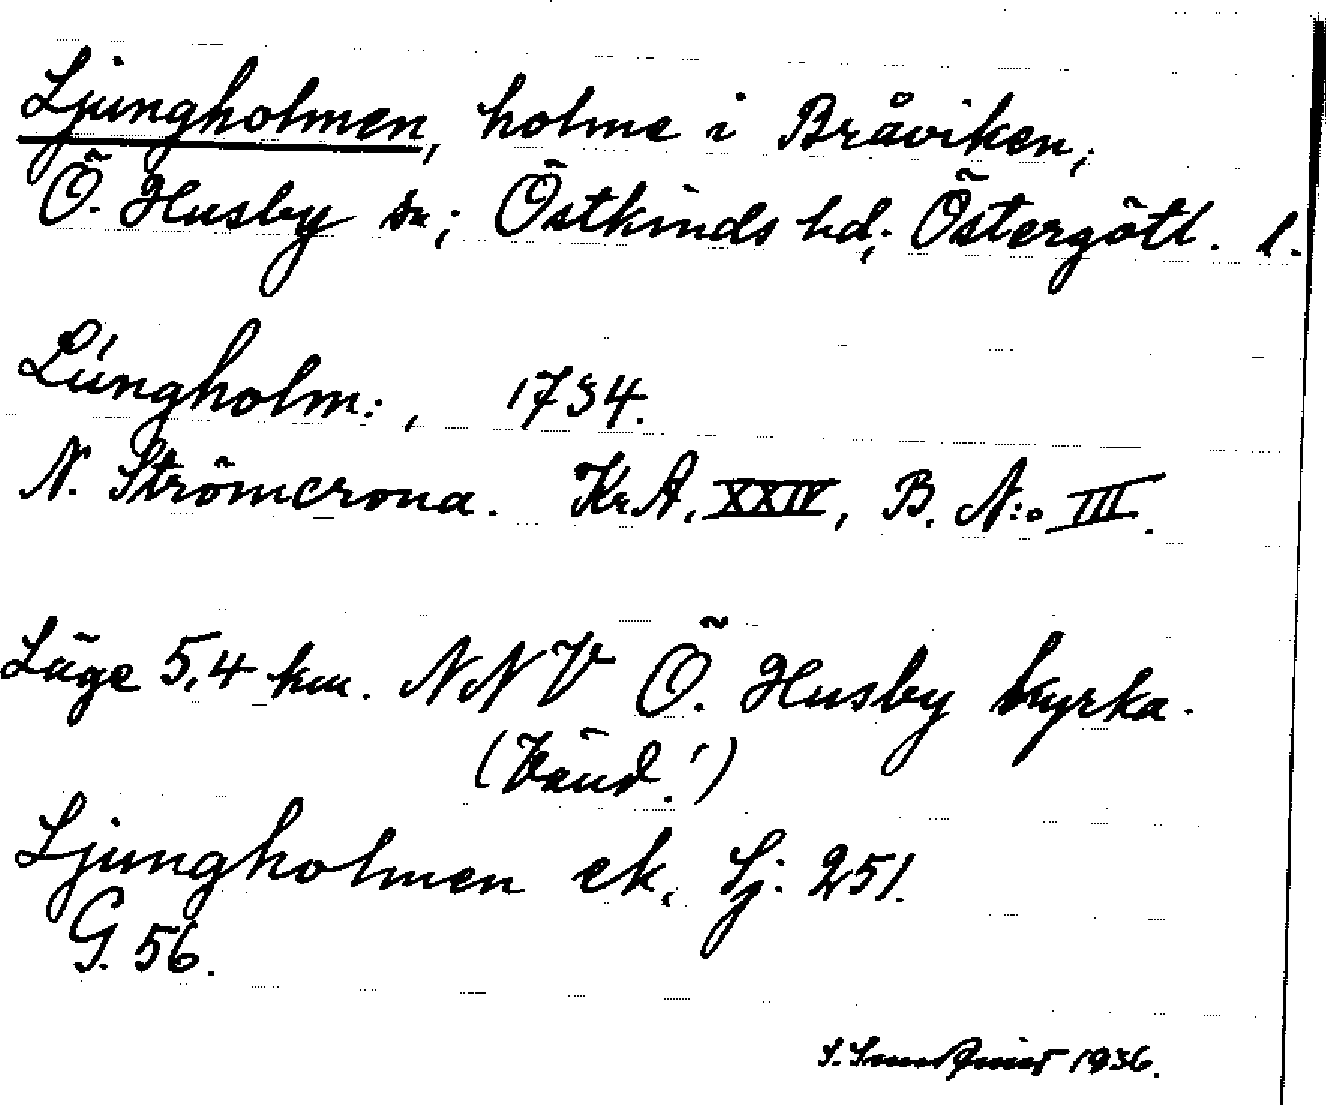 Ljungholmen, holme i Bråviken,
Ö. Husby sn; Östkinds hd; Östergötl. l.
Liungholm:, 1734.
N. Strömcrona. Kr.A. XXIV, B. N:o III.
Läge 5,4 km. NNV Ö. Husby kyrka.
(Vänd!)
Ljungholmen ek. Lj. 251.
G. 56.
1936.